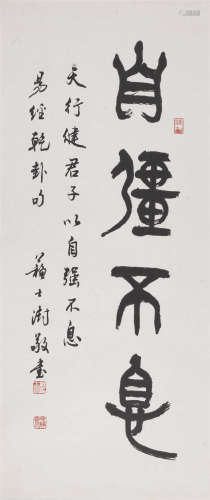 自彊不息
天行健君子以自强不息
易經乾卦句
蘇士澍敬書